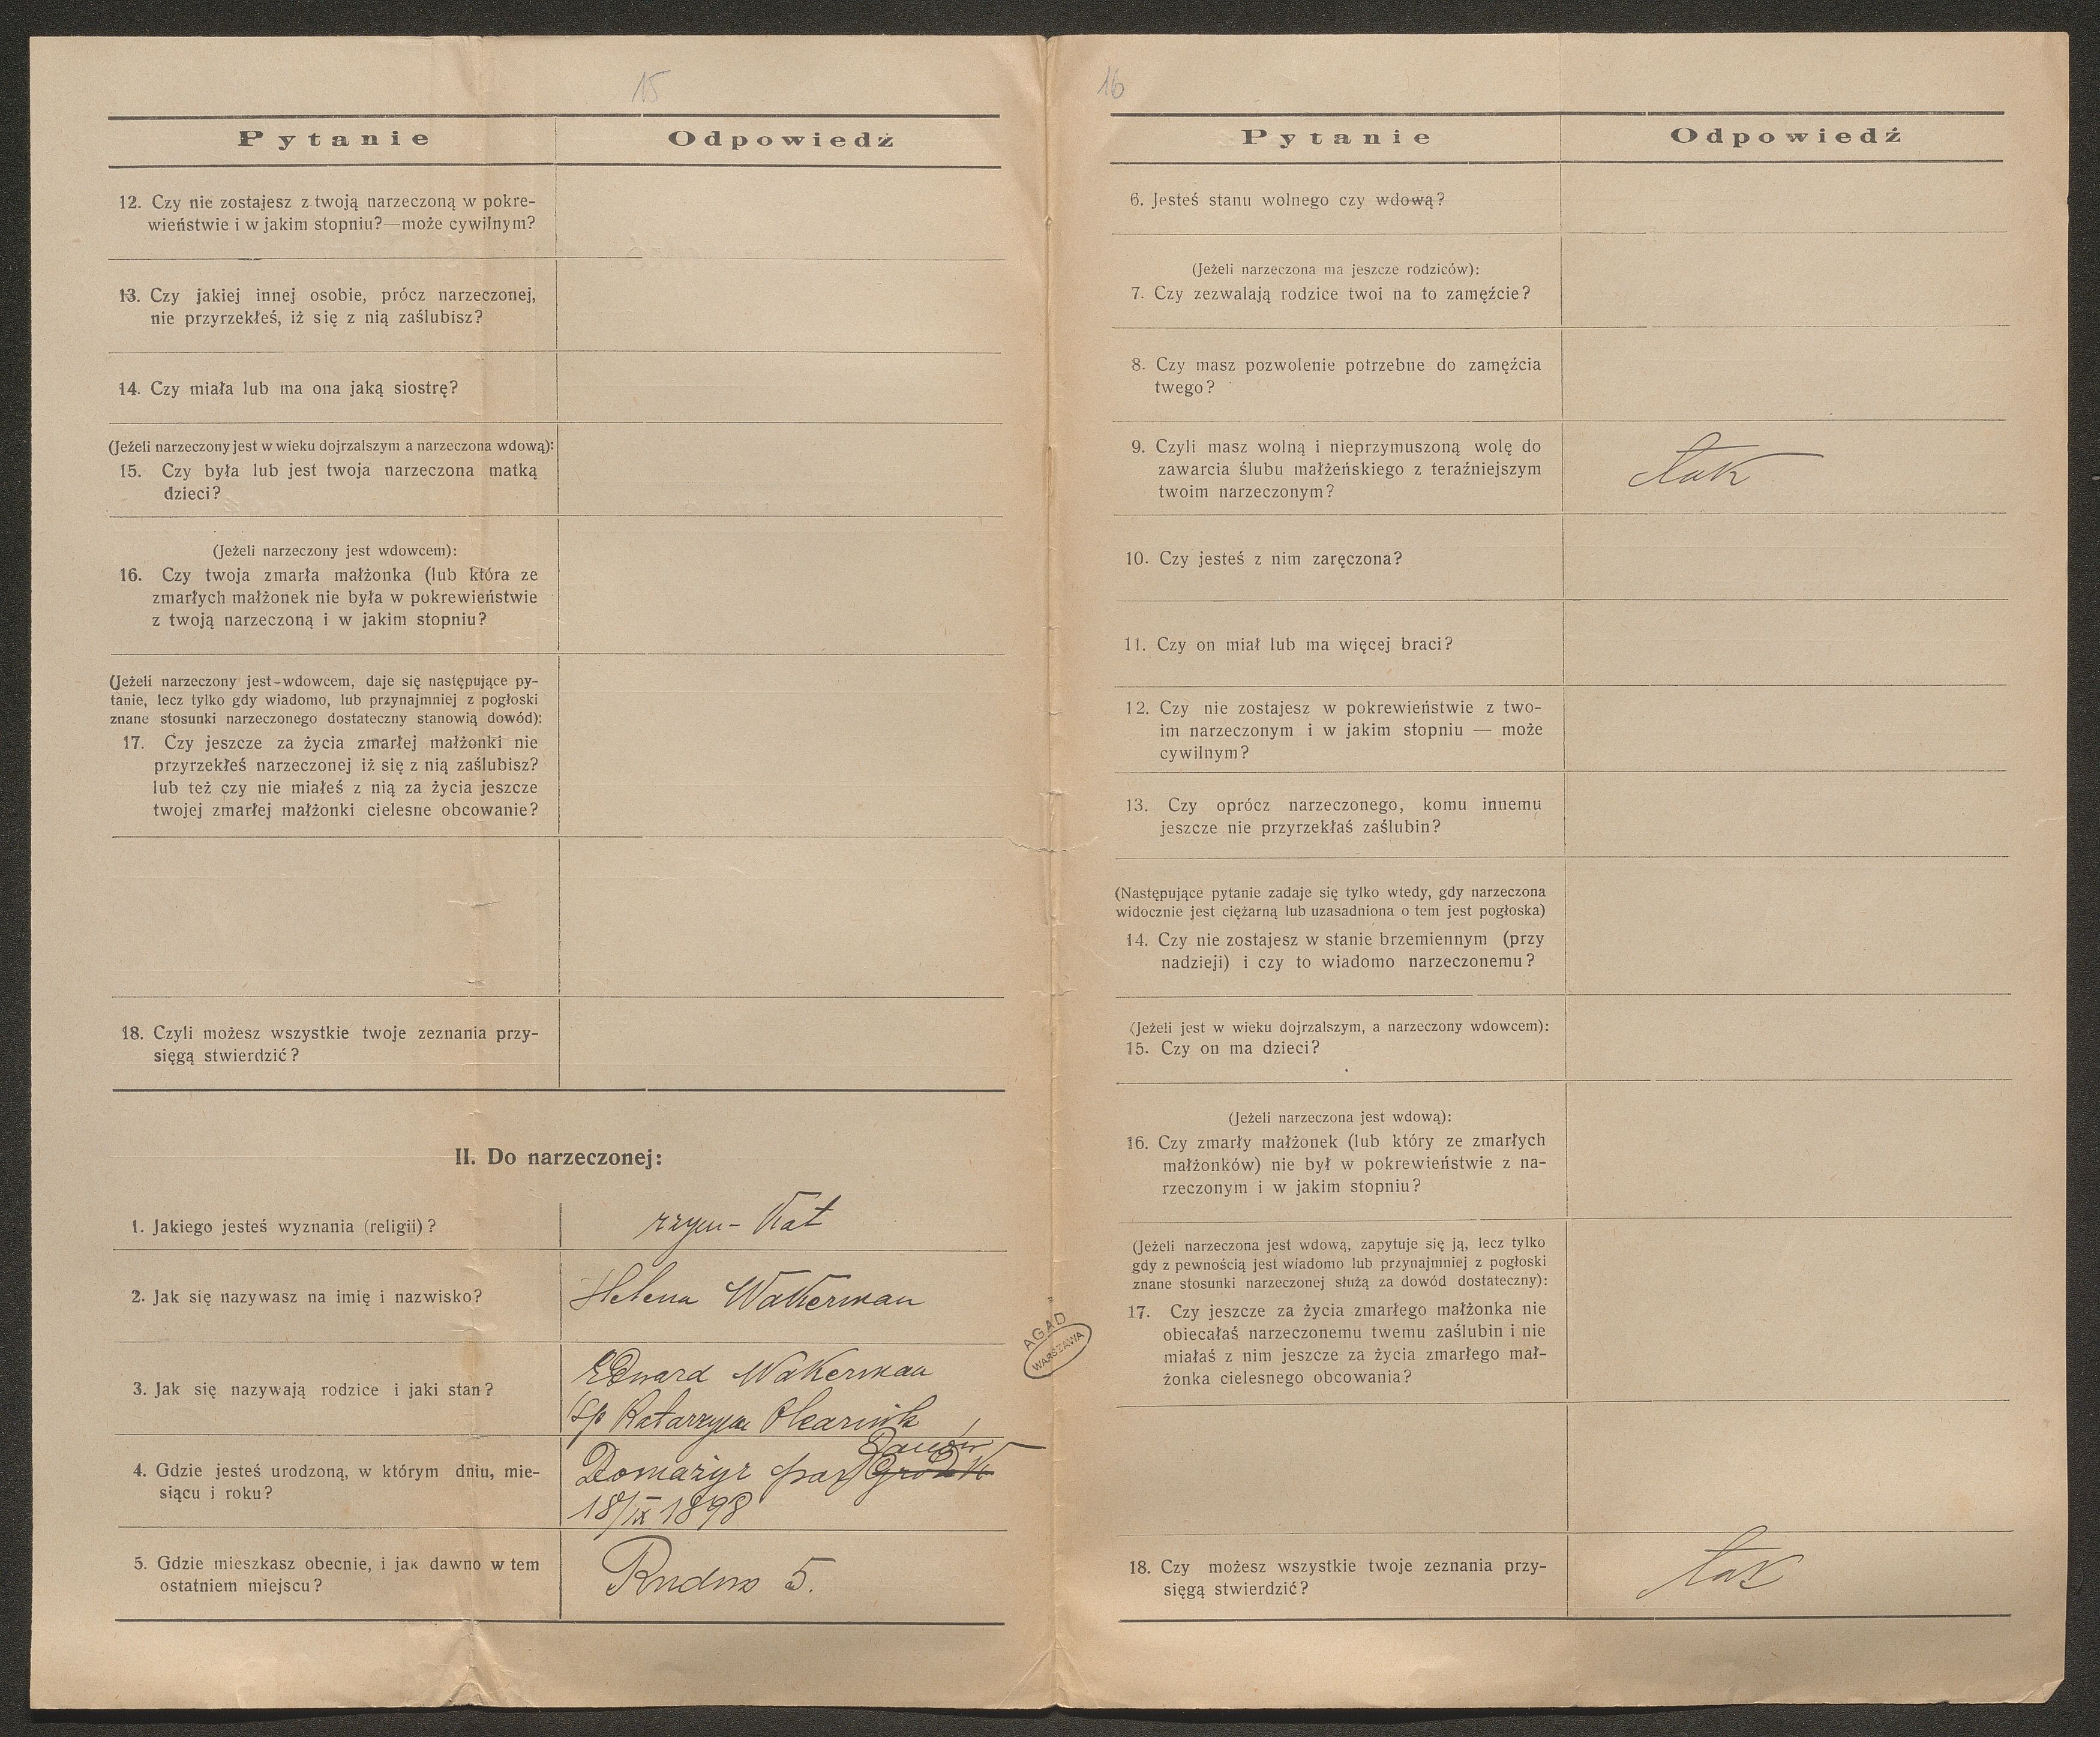 15
Pytanie
Odpowiedź
12. Czy nie zostajesz z twoją narzeczoną w pokre-
wieństwie i w jakim stopniu?—może cywilnym?
13. Czy jakiej innej osobie, prócz narzeczonej,
nie przyrzekłeś, iż się z nią zaślubisz?
14. Czy miała lub ma ona jaką siostrę?
(Jeżeli narzeczony jest w wieku dojrzalszym a narzeczona wdową):
15. Czy była lub jest twoja narzeczona matką
dzieci?
(Jeżeli narzeczony jest wdowcem):
16. Czy twoja zmarła małżonka (lub która ze
zmarłych małżonek nie była w pokrewieństwie
z twoją narzeczoną i w jakim stopniu?
(Jeżeli narzeczony jest-wdowcem, daje się następujące py-
tanie, lecz tylko gdy wiadomo, lub przynajmniej z pogłoski
znane stosunki narzeczonego dostateczny stanowią dowód):
17. Czy jeszcze za życia zmarłej małżonki nie
przyrzekłeś narzeczonej iż się z nią zaślubisz?
lub też czy nie miałeś z nią za życia jeszcze
twojej zmarłej małżonki cielesne obcowanie?
18. Czyli możesz wszystkie twoje zeznania przy-
sięgą stwierdzić?
II. Do narzeczonej:
1. Jakiego jesteś wyznania (religii)?
rzym-Kat
2. Jak się nazywasz na imię i nazwisko?
Helena Wakerman
3. Jak się nazywają rodzice i jaki stan?
Edward Wakerman
śp Katarzyna Olearnik
4. Gdzie jesteś urodzoną, w którym dniu, mie-
siącu i roku?
Janów
Domażyr par Gródek
18/IX 1898
5. Gdzie mieszkasz obecnie, i jak dawno w tem
ostatniem miejscu?
Rudno 5.
AGAD
WARSZAWA
16
Pytanie
Odpowiedź
6. Jesteś stanu wolnego czy wdową?
(Jeżeli narzeczona ma jeszcze rodziców):
7. Czy zezwalają rodzice twoi na to zamęźcie?
8. Czy masz pozwolenie potrzebne do zamęźcia
twego?
9. Czyli masz wolną i nieprzymuszoną wolę do
zawarcia ślubu małżeńskiego z teraźniejszym
twoim narzeczonym?
tak
10. Czy jesteś z nim zaręczona?
11. Czy on miał lub ma więcej braci?
12. Czy nie zostajesz w pokrewieństwie z two-
im narzeczonym i w jakim stopniu — może
cywilnym?
13. Czy oprócz narzeczonego, komu innemu
jeszcze nie przyrzekłaś zaślubin?
(Następujące pytanie zadaje się tylko wtedy, gdy narzeczona
widocznie jest ciężarną lub uzasadniona o tem jest pogłoska)
14. Czy nie zostajesz w stanie brzemiennym (przy
nadzieji) i czy to wiadomo narzeczonemu?
(Jeżeli jest w wieku dojrzalszym, a narzeczony wdowcem):
15. Czy on ma dzieci?
(Jeżeli narzeczona jest wdową):
16. Czy zmarły małżonek (lub który ze zmarłych
małżonków) nie był w pokrewieństwie z na-
rzeczonym i w jakim stopniu?
(Jeżeli narzeczona jest wdową, zapytuje się ją, lecz tylko
gdy z pewnością jest wiadomo lub przynajmniej z pogłoski
znane stosunki narzeczonej służą za dowód dostateczny):
17. Czy jeszcze za życia zmarłego małżonka nie
obiecałaś narzeczonemu twemu zaślubin i nie
miałaś z nim jeszcze za życia zmarłego mał-
żonka cielesnego obcowania?
18. Czy możesz wszystkie twoje zeznania przy-
sięgą stwierdzić?
tak